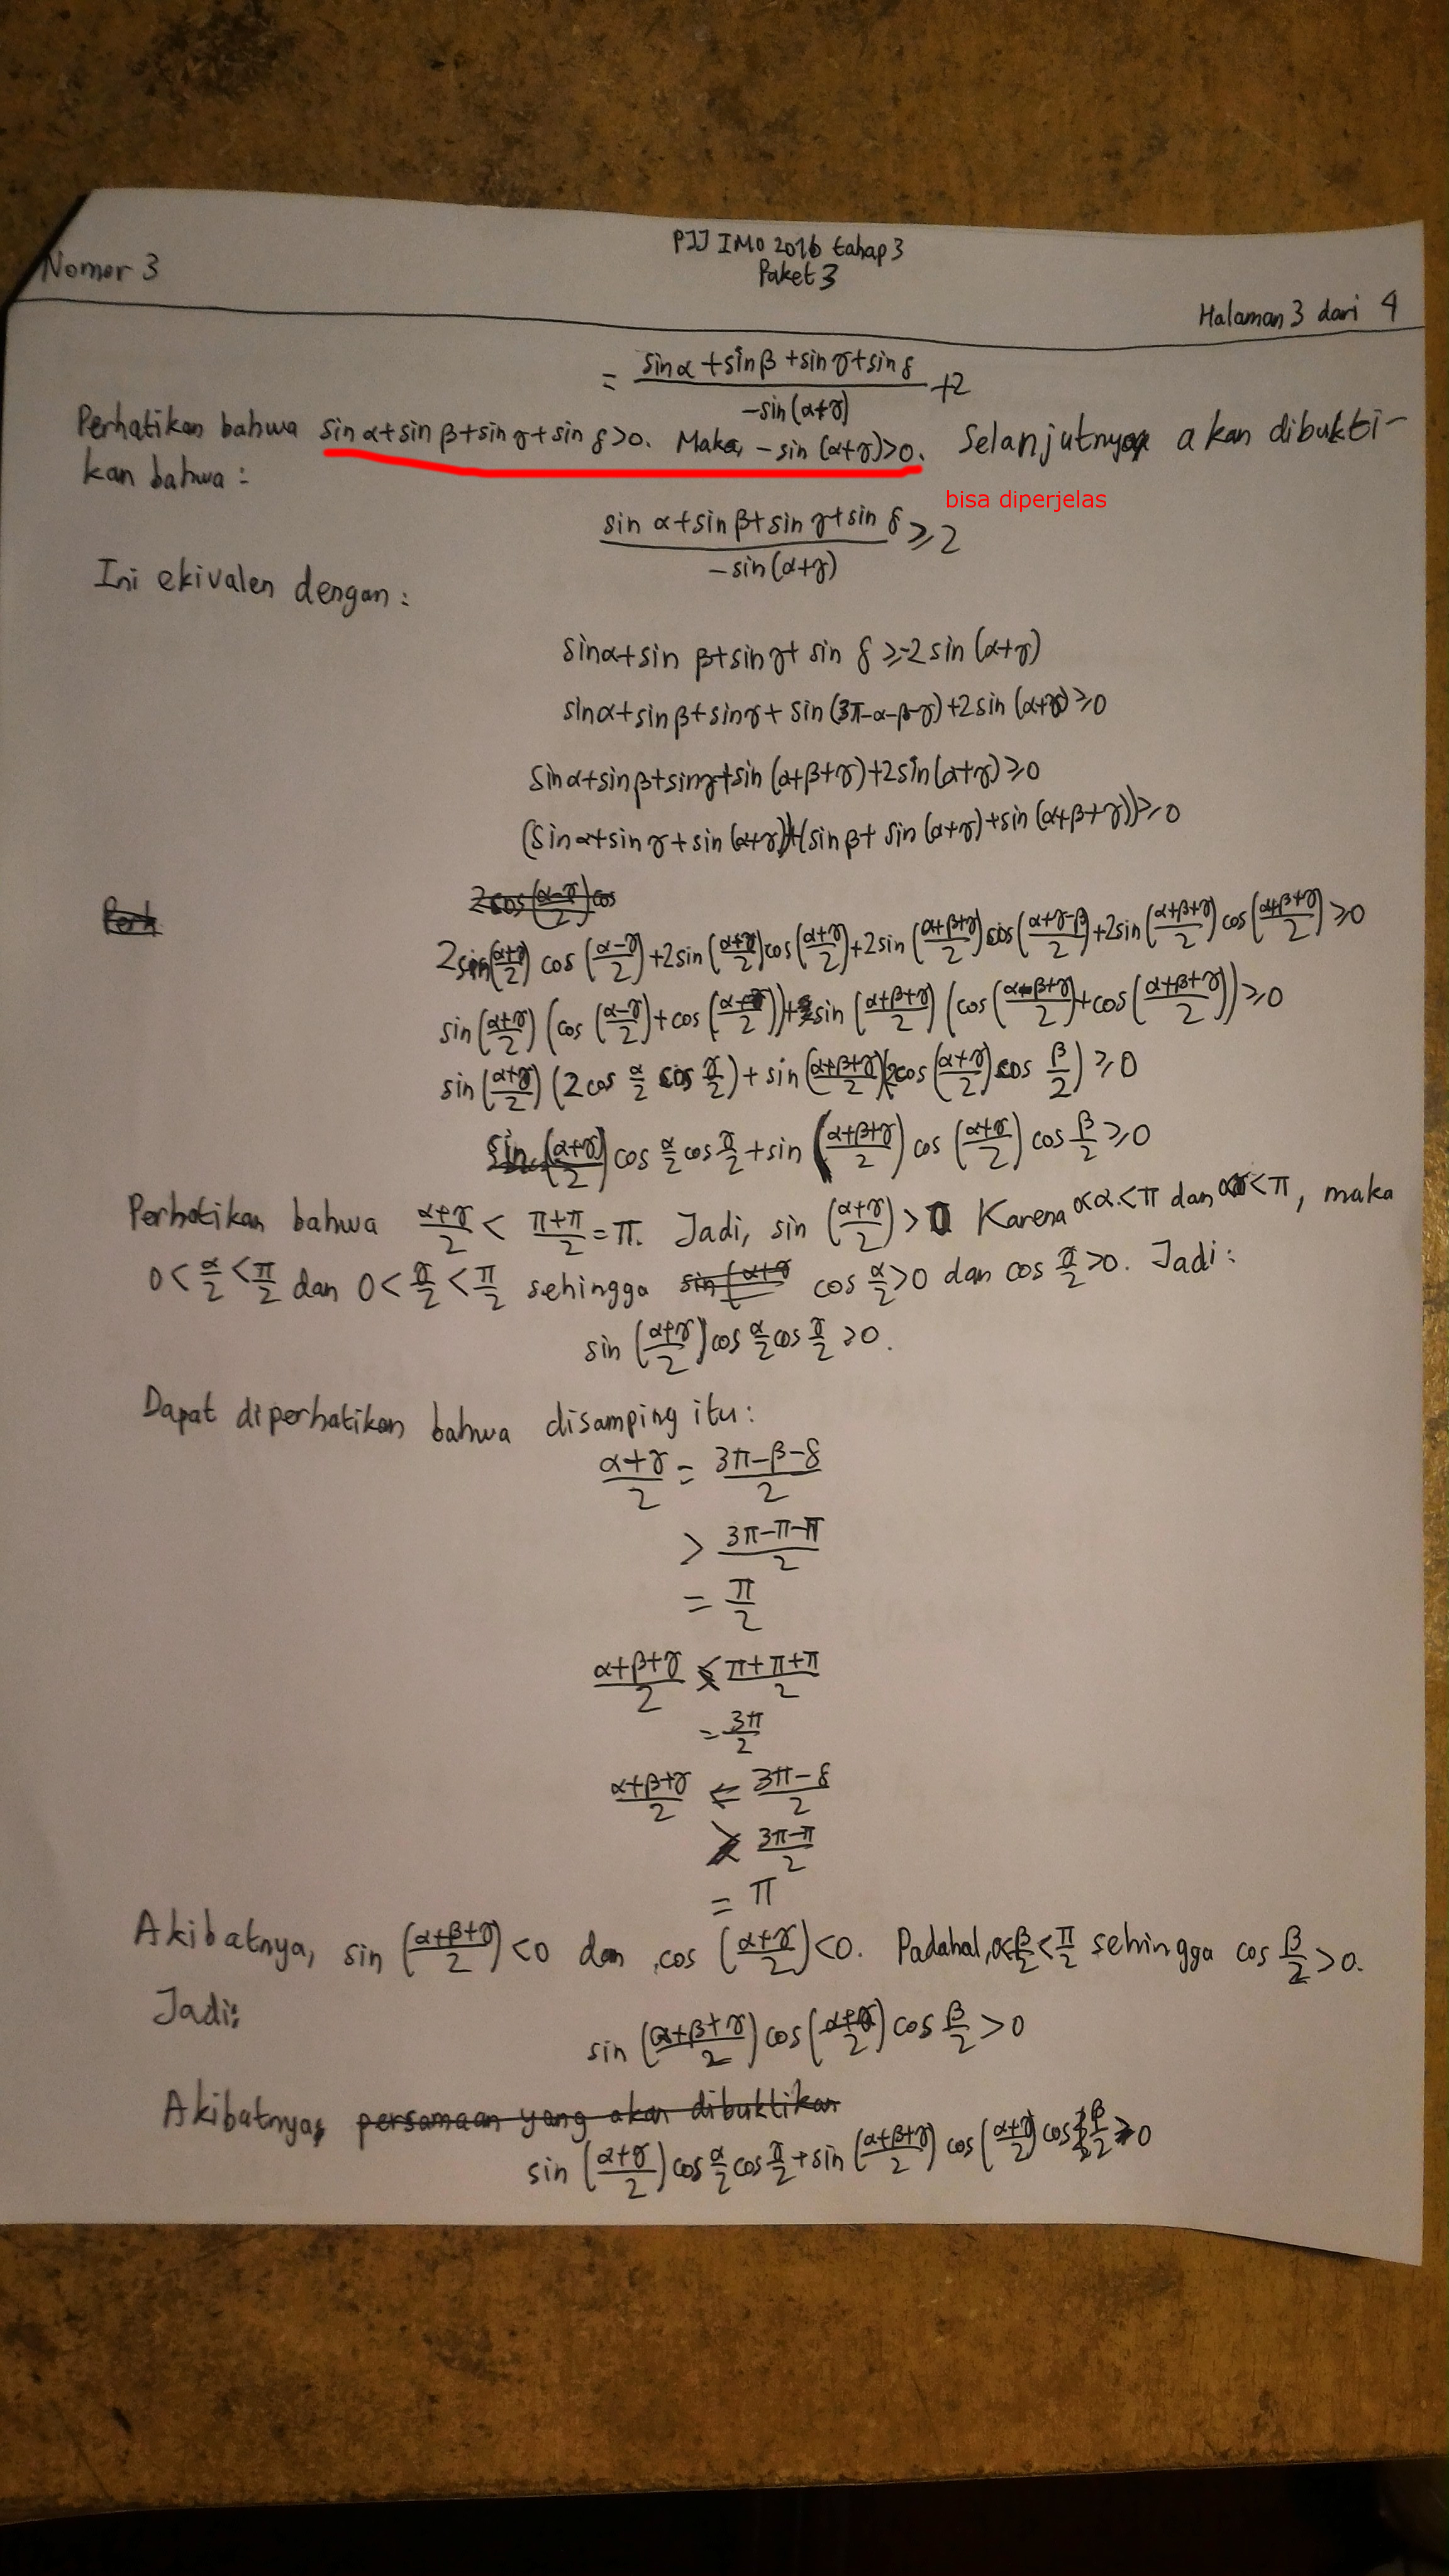 Nomor 3
PJJ IMO 2016 tahap 3
Paket 3
Halaman 3 dari 4
= (sin α + sin β + sin γ + sin δ)/(-sin(α+γ)) + 2
Perhatikan bahwa sin α + sin β + sin γ + sin δ > 0. Maka, -sin(α+γ) > 0. Selanjutnya akan dibukti-
kan bahwa :
bisa diperjelas
(sin α + sin β + sin γ + sin δ)/(-sin(α+γ)) ≥ 2
Ini ekivalen dengan :
sin α + sin β + sin γ + sin δ ≥ -2 sin(α+γ)
sin α + sin β + sin γ + sin(3π-α-β-γ) + 2 sin(α+γ) ≥ 0
sin α + sin β + sin γ + sin(α+β+γ) + 2 sin(α+γ) ≥ 0
(sin α + sin γ + sin(α+γ)) + (sin β + sin(α+γ) + sin(α+β+γ)) ≥ 0
2 sin((α+γ)/2) cos((α-γ)/2) + 2 sin((α+γ)/2) cos((α+γ)/2) + 2 sin((α+β+γ)/2) cos((α+γ-β)/2) + 2 sin((α+β+γ)/2) cos((α+β+γ)/2) ≥ 0
sin((α+γ)/2) (cos((α-γ)/2) + cos((α+γ)/2)) + sin((α+β+γ)/2) (cos((α-β+γ)/2) + cos((α+β+γ)/2)) ≥ 0
sin((α+γ)/2) (2 cos α/2 cos γ/2) + sin((α+β+γ)/2) (2 cos((α+γ)/2) cos β/2) ≥ 0
sin((α+γ)/2) cos α/2 cos γ/2 + sin((α+β+γ)/2) cos((α+γ)/2) cos β/2 ≥ 0
Perhatikan bahwa (α+γ)/2 < (π+π)/2 = π. Jadi, sin((α+γ)/2) > 0 Karena 0<α<π dan 0<γ<π, maka
0 < α/2 < π/2 dan 0 < γ/2 < π/2 sehingga cos α/2 > 0 dan cos γ/2 > 0. Jadi :
sin((α+γ)/2) cos α/2 cos γ/2 > 0.
Dapat diperhatikan bahwa disamping itu :
(α+γ)/2 = (3π-β-δ)/2
> (3π-π-π)/2
= π/2
(α+β+γ)/2 < (π+π+π)/2
= 3π/2
(α+β+γ)/2 = (3π-δ)/2
> (3π-π)/2
= π
Akibatnya, sin((α+β+γ)/2) < 0 dan cos((α+γ)/2) < 0. Padahal, 0<β/2<π/2 sehingga cos β/2 > 0.
Jadi;
sin((α+β+γ)/2) cos((α+γ)/2) cos β/2 > 0
Akibatnya, persamaan yang akan dibuktikan
sin((α+γ)/2) cos α/2 cos γ/2 + sin((α+β+γ)/2) cos((α+γ)/2) cos β/2 > 0